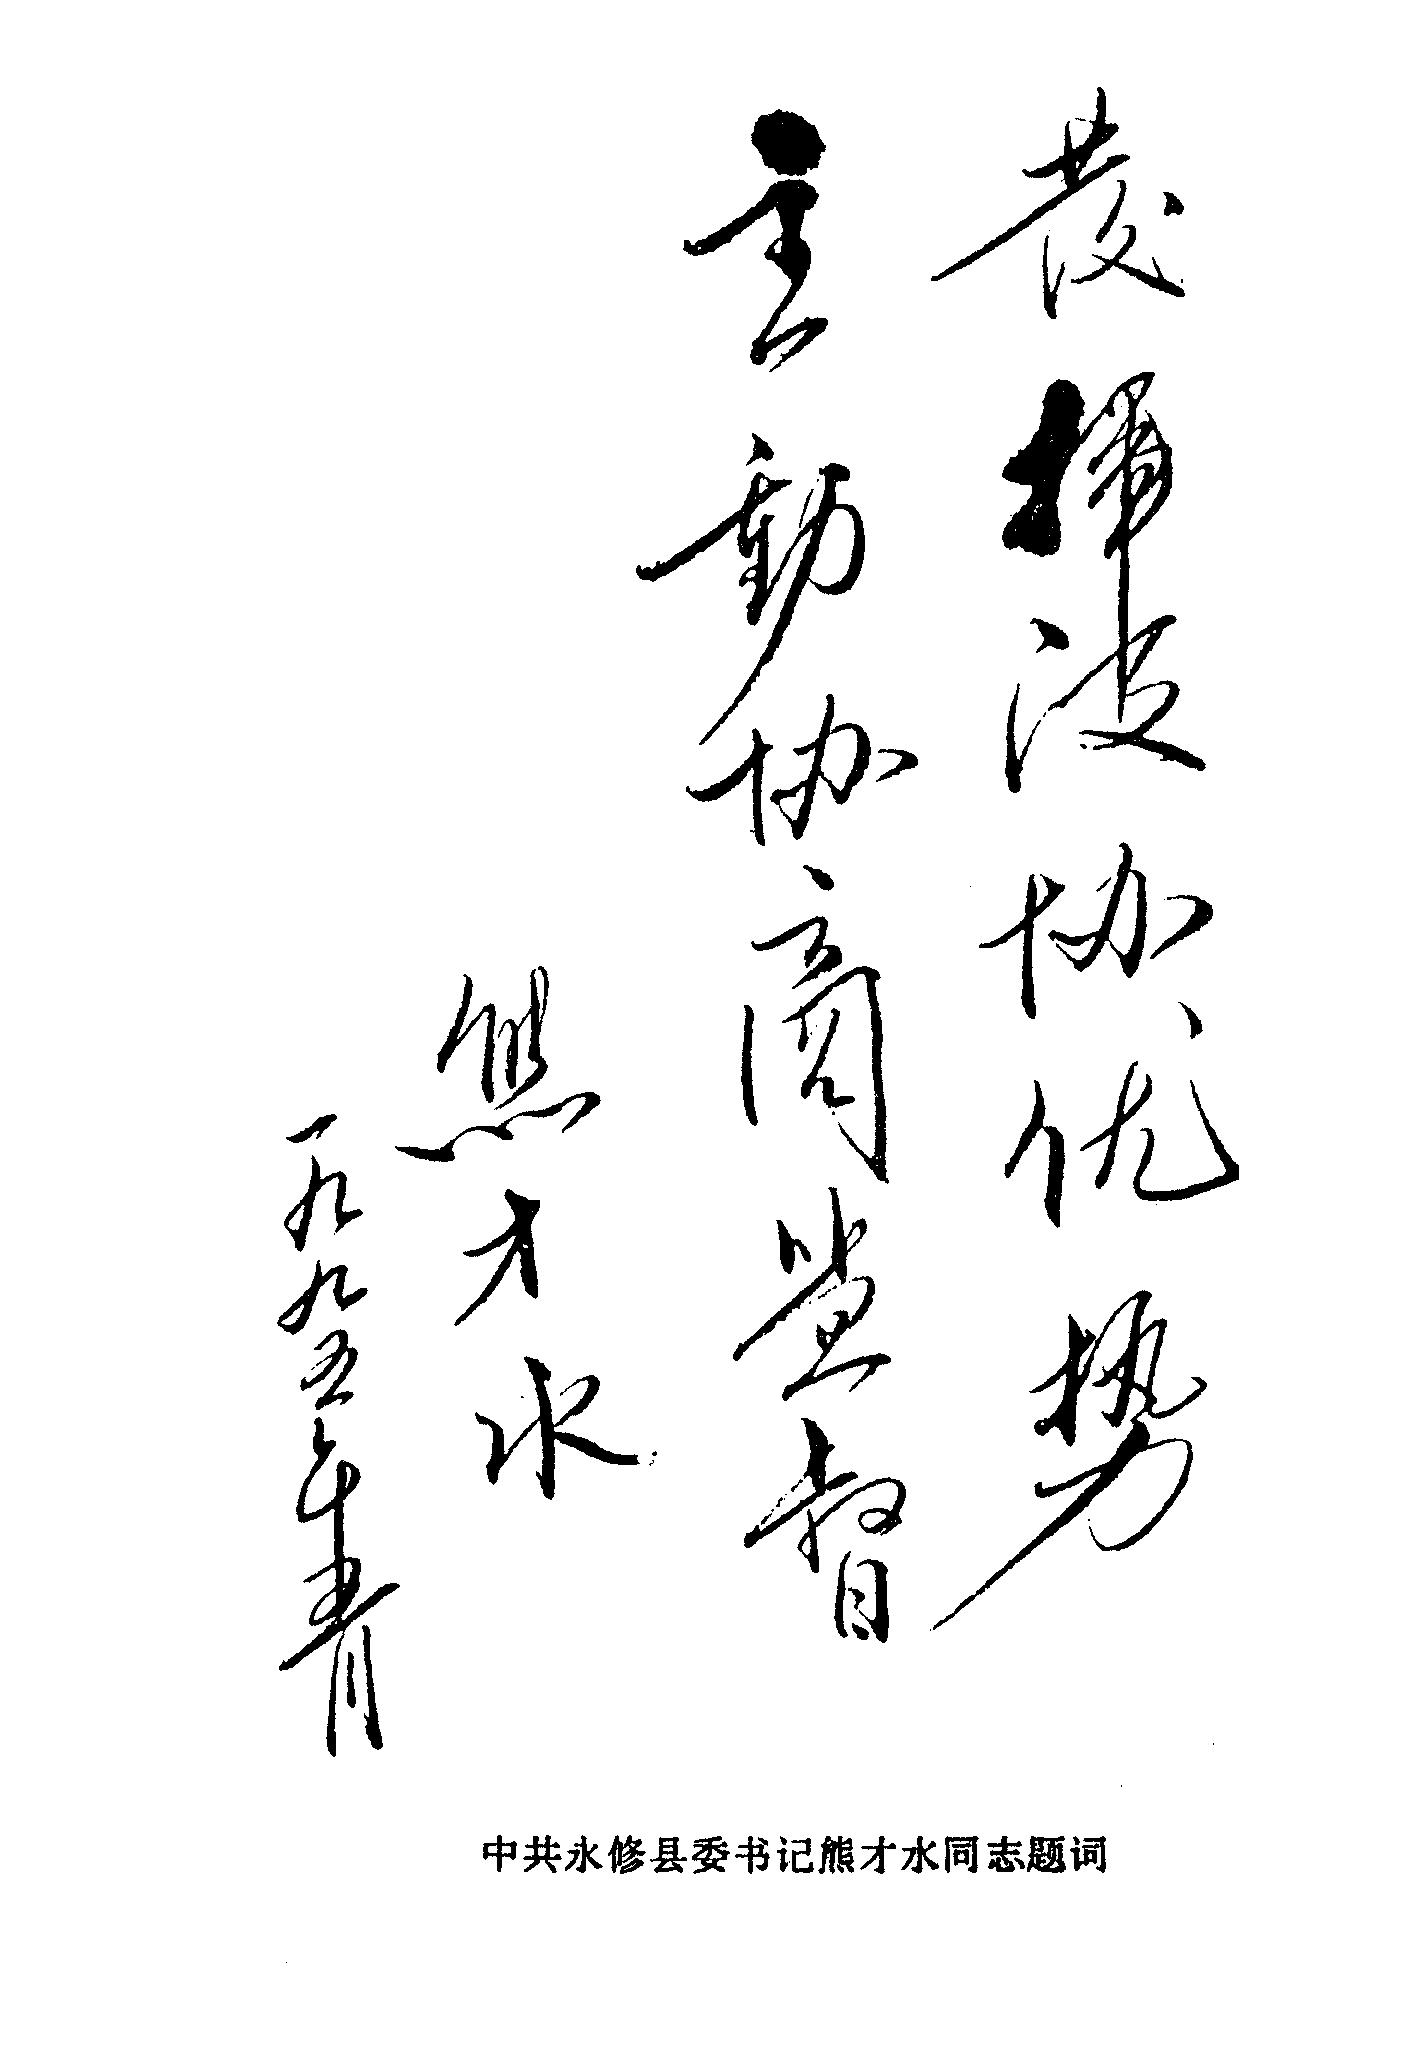 發揮政协优势
主動协商监督
熊才水
一九九五年五月
中共永修县委书记熊才水同志题词